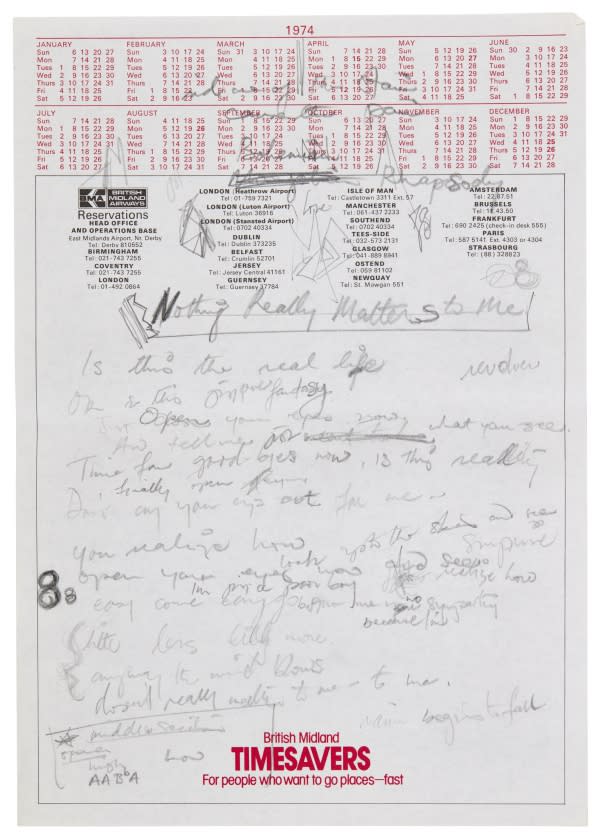 1974
JANUARY FEBRUARY MARCH APRIL MAY JUNE
Sun 6 13 20 27 Sun 3 10 17 24 Sun 31 3 10 17 24 Sun 7 14 21 28 Sun 5 12 19 26 Sun 30 2 9 16 23
Mon 7 14 21 28 Mon 4 11 18 25 Mon 4 11 18 25 Mon 1 8 15 22 29 Mon 6 13 20 27 Mon 3 10 17 24
Tues 1 8 15 22 29 Tues 5 12 19 26 Tues 5 12 19 26 Tues 2 9 16 23 30 Tues 7 14 21 28 Tues 4 11 18 25
Wed 2 9 16 23 30 Wed 6 13 20 27 Wed 6 13 20 27 Wed 3 10 17 24 Wed 1 8 15 22 29 Wed 5 12 19 26
Thurs 3 10 17 24 31 Thurs 7 14 21 28 Thurs 7 14 21 28 Thurs 4 11 18 25 Thurs 2 9 16 23 30 Thurs 6 13 20 27
Fri 4 11 18 25 Fri 1 8 15 22 Fri 1 8 15 22 29 Fri 5 12 19 26 Fri 3 10 17 24 31 Fri 7 14 21 28
Sat 5 12 19 26 Sat 2 9 16 23 Sat 2 9 16 23 30 Sat 6 13 20 27 Sat 4 11 18 25 Sat 1 8 15 22 29
JULY AUGUST SEPTEMBER OCTOBER NOVEMBER DECEMBER
Sun 7 14 21 28 Sun 4 11 18 25 Sun 1 8 15 22 29 Sun 6 13 20 27 Sun 3 10 17 24 Sun 1 8 15 22 29
Mon 1 8 15 22 29 Mon 5 12 19 26 Mon 2 9 16 23 30 Mon 7 14 21 28 Mon 4 11 18 25 Mon 2 9 16 23 30
Tues 2 9 16 23 30 Tues 6 13 20 27 Tues 3 10 17 24 Tues 1 8 15 22 29 Tues 5 12 19 26 Tues 3 10 17 24 31
Wed 3 10 17 24 31 Wed 7 14 21 28 Wed 4 11 18 25 Wed 2 9 16 23 30 Wed 6 13 20 27 Wed 4 11 18 25
Thurs 4 11 18 25 Thurs 1 8 15 22 29 Thurs 5 12 19 26 Thurs 3 10 17 24 31 Thurs 7 14 21 28 Thurs 5 12 19 26
Fri 5 12 19 26 Fri 2 9 16 23 30 Fri 6 13 20 27 Fri 4 11 18 25 Fri 1 8 15 22 29 Fri 6 13 20 27
Sat 6 13 20 27 Sat 3 10 17 24 31 Sat 7 14 21 28 Sat 5 12 19 26 Sat 2 9 16 23 30 Sat 7 14 21 28
Rhapsody
BMA BRITISH MIDLAND AIRWAYS
Reservations
HEAD OFFICE
AND OPERATIONS BASE
East Midlands Airport, Nr. Derby
Tel: Derby 810552
BIRMINGHAM
Tel: 021-743 7255
COVENTRY
Tel: 021-743 7255
LONDON
Tel: 01-492 0864
LONDON (Heathrow Airport)
Tel: 01-759 7321
LONDON (Luton Airport)
Tel: Luton 36916
LONDON (Stansted Airport)
Tel: 0702 40334
DUBLIN
Tel: Dublin 373235
BELFAST
Tel: Crumlin 52701
JERSEY
Tel: Jersey Central 41161
GUERNSEY
Tel: Guernsey 37784
ISLE OF MAN
Tel: Castletown 3311 Ext. 57
MANCHESTER
Tel: 061-437 2233
SOUTHEND
Tel: 0702 40334
TEES-SIDE
Tel: 032-573 2131
GLASGOW
Tel: 041-889 8941
OSTEND
Tel: 059 81102
NEWQUAY
Tel: St. Mawgan 551
AMSTERDAM
Tel: 22.87.51
BRUSSELS
Tel: 43.50
FRANKFURT
Tel: 690 2425 (check-in desk 555)
PARIS
Tel: 587 5141 Ext. 4303 or 4304
STRASBOURG
Tel: (88) 328823
Nothing Really Matters to Me
Is this the real life
revolver
Or is this fantasy
Open your eyes now what you see
And tell me
Time for good byes now, is this reality
finally open
Don't cry your eyes out for me
you realize how look to the skies and see
open your eyes now surprise
I'm just a poor boy realize how
easy come easy go no sympathy
because I'm
little less little more
anyway the wind blows
doesn't really matter to me - to me.
begins to fall
middle section
high
AABbA how
8 8
British Midland
TIMESAVERS
For people who want to go places—fast